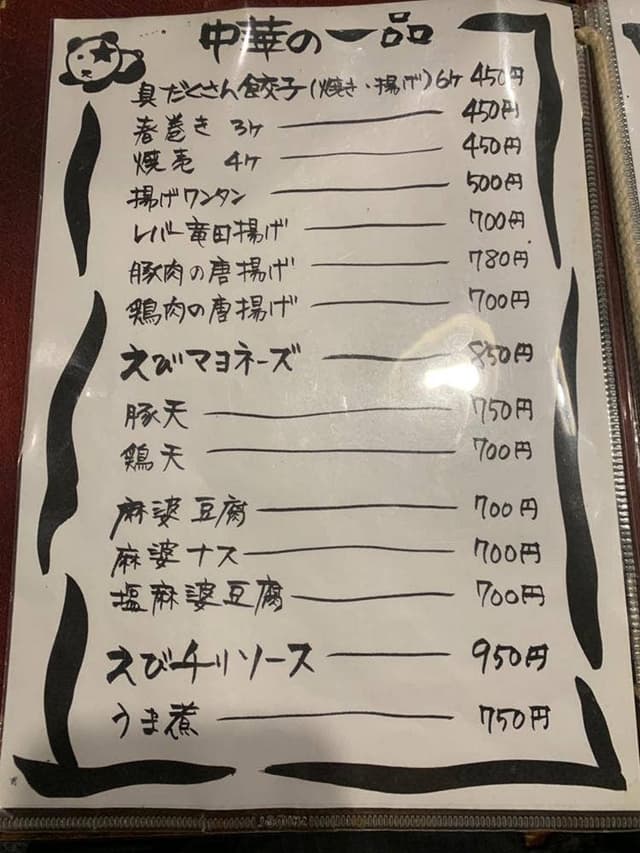 中華の一品
具だくさん餃子(焼き・揚げ)6ヶ 450円
春巻き 3ヶ 450円
焼売 4ヶ 450円
揚げワンタン 500円
レバー竜田揚げ 700円
豚肉の唐揚げ 780円
鶏肉の唐揚げ 700円
えびマヨネーズ 850円
豚天 750円
鶏天 700円
麻婆豆腐 700円
麻婆ナス 700円
塩麻婆豆腐 700円
えびチリソース 950円
うま煮 750円